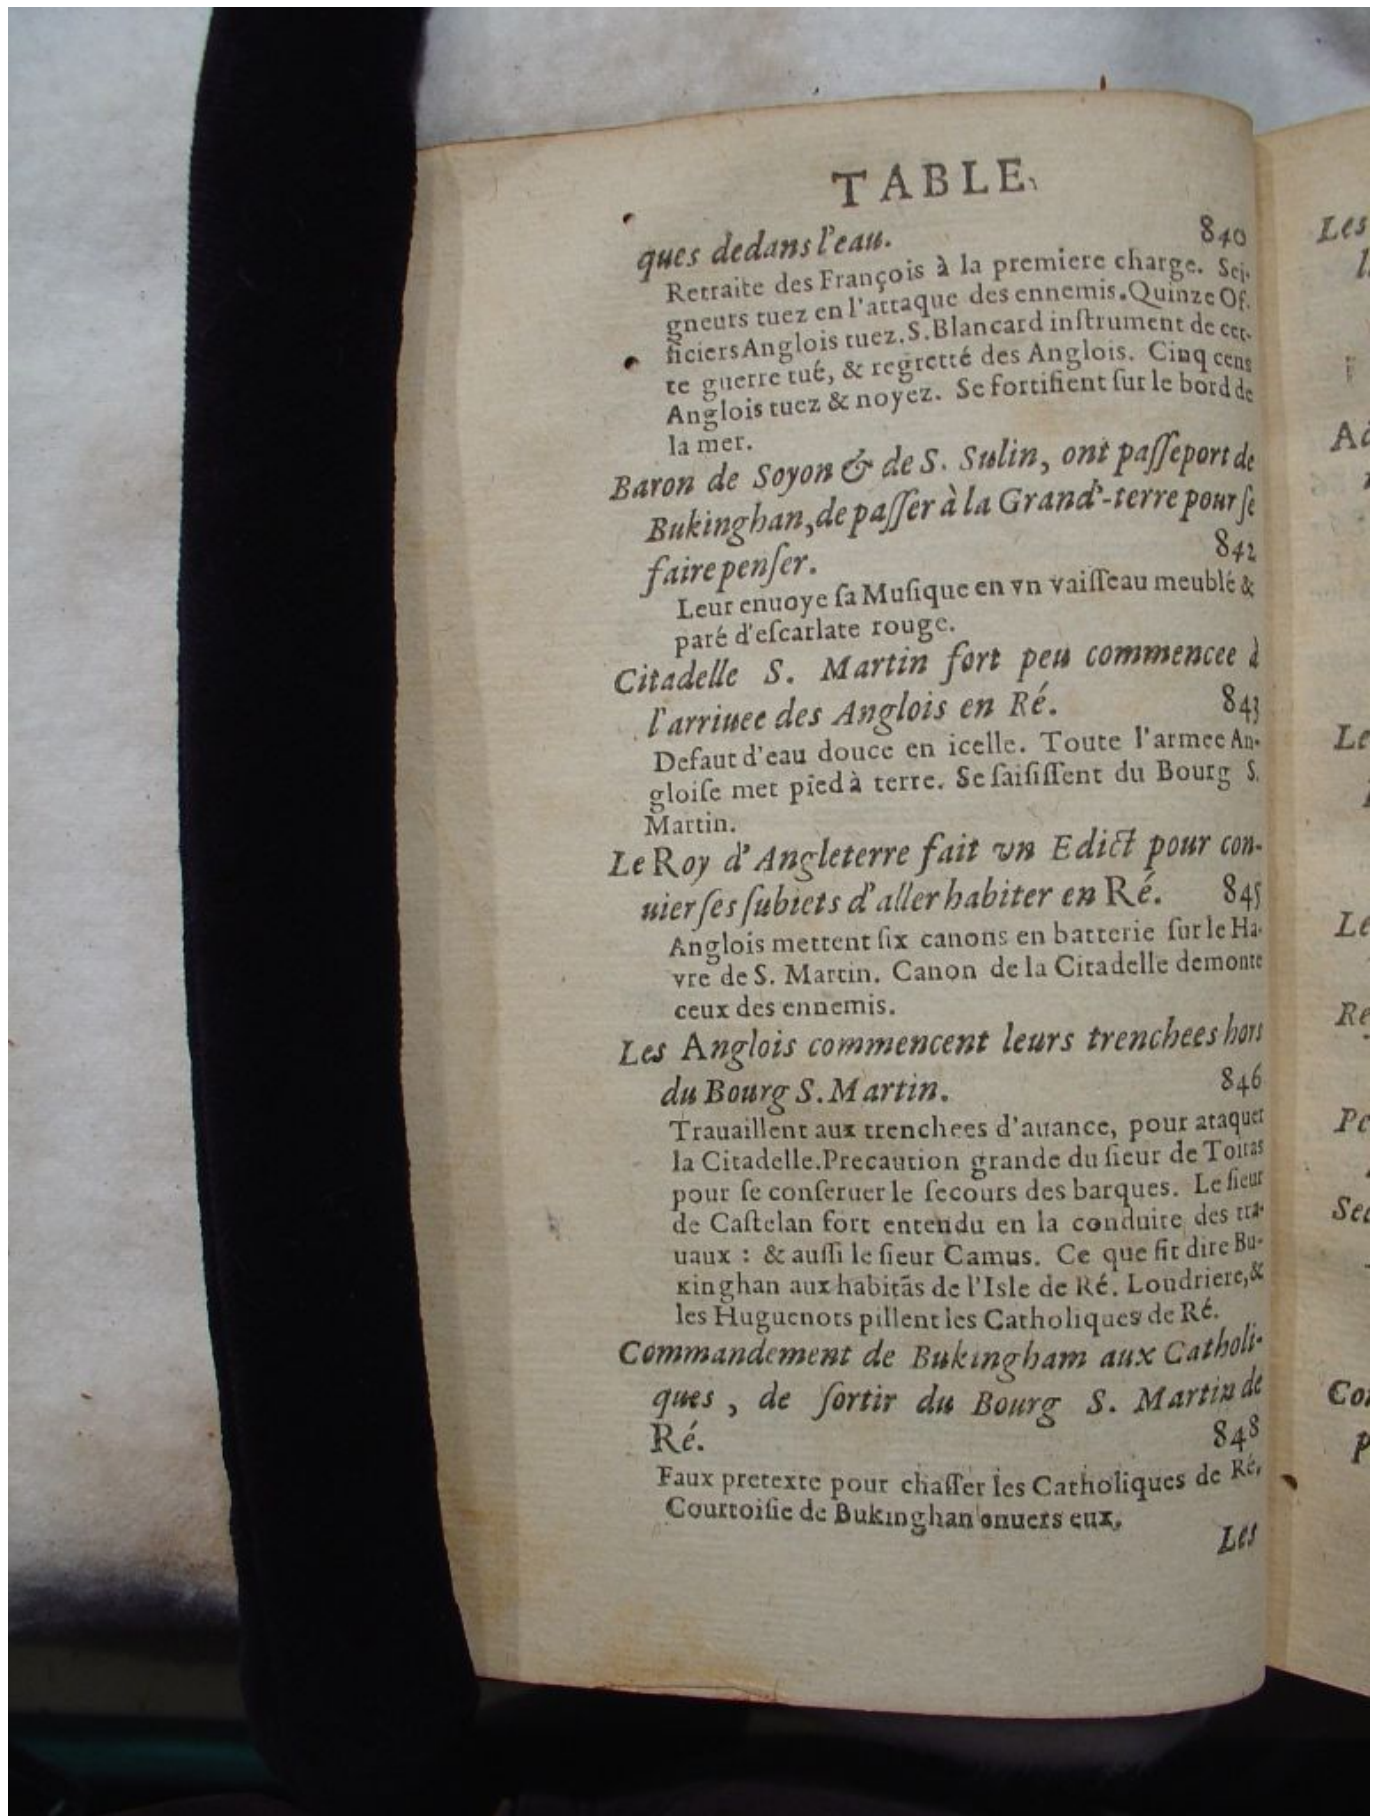 TABLE
ques dedans l'eau. 840
Retraite des François à la premiere charge. Sei-
gneurs tuez en l'attaque des ennemis. Quinze Of-
ficiers Anglois tuez. S. Blancard inſtrument de cet-
te guerre tué, & regretté des Anglois. Cinq cens
Anglois tuez & noyez. Se fortifient ſur le bord de
la mer.
Baron de Soyon & de S. Sulin, ont paſſeport de
Bukinghan, de paſſer à la Grand'-terre pour ſe
faire penſer. 842
Leur enuoye ſa Muſique en vn vaiſſeau meublé &
paré d'eſcarlate rouge.
Citadelle S. Martin fort peu commencee à
l'arriuee des Anglois en Ré. 843
Defaut d'eau douce en icelle. Toute l'armee An-
gloiſe met pied à terre. Se ſaiſiſſent du Bourg S.
Martin.
Le Roy d'Angleterre fait vn Edict pour con-
uier ſes ſubiets d'aller habiter en Ré. 845
Anglois mettent ſix canons en batterie ſur le Ha-
vre de S. Martin. Canon de la Citadelle demonte
ceux des ennemis.
Les Anglois commencent leurs trenchees hors
du Bourg S. Martin. 846
Trauaillent aux trenchees d'auance, pour ataquer
la Citadelle. Precaution grande du ſieur de Toiras
pour ſe conſeruer le ſecours des barques. Le ſieur
de Caſtelan fort entendu en la conduite des tra-
uaux : & auſſi le ſieur Camus. Ce que fit dire Bu-
kinghan aux habitãs de l'Isle de Ré. Loudriere, &
les Huguenots pillent les Catholiques de Ré.
Commandement de Bukingham aux Catholi-
ques, de ſortir du Bourg S. Martin de
Ré. 848
Faux pretexte pour chaſſer les Catholiques de Ré.
Courtoiſie de Bukinghan enuers eux.
Les
Les
Ad
Le
Le
Re
Pe
Sec
Con
p